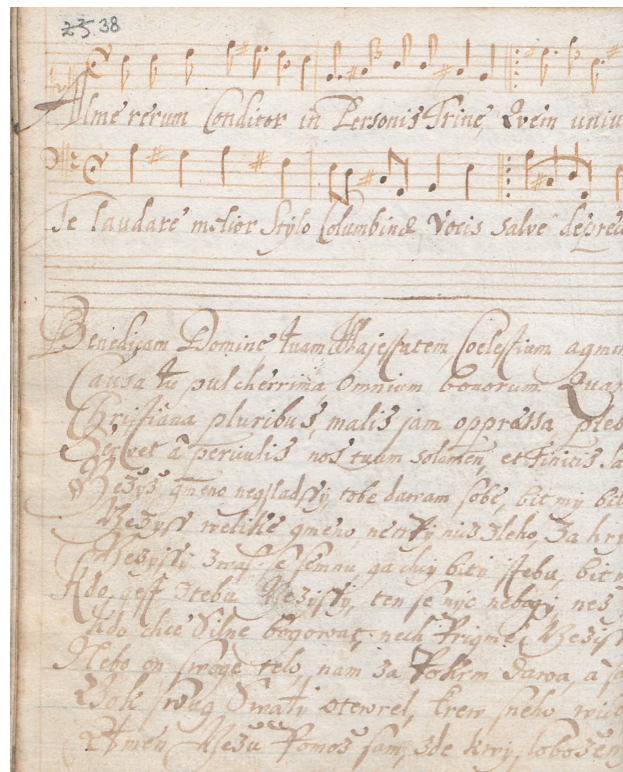 38
Alme rerum Conditor in Personis Trine, Qvem uniu
Te laudare melior Stylo Columbinæ Vocis salve deprec
Benedicam Domine tuam Majestatem, Coelestium agmin
Causa tu pulcherrima Omnium bonorum Quam
Christiana pluribus malis jam oppressa pleb
et â pervulis nos tuum solamen, et finitis la
gmeno negsladssy, tobe dawam sobe, bit my bit
Gezyss welike gmeno, nic zleho, Za hry
se semnu, ga chcy bity stebu, bit m
Kdo gest stebu Gezyssy, ten se nyc nebogy, nes
Kdo chce Silne bogowat, nech Prigme, Gezis
Nebo on swoge telo, nam za Pokrm dawa, a so
Bok swug Swaty otewrel, krew sneho
Amen Gezu Pomoz sam, zde